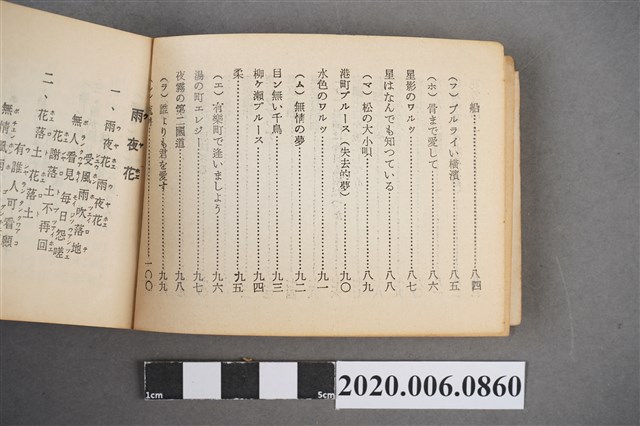 船……八四
(フ) ブルライい横濱……八五
(ホ) 骨まで愛して……八六
星影のワルツ……八七
星はなんでも知つている……八八
(マ) 松の大小唄……八九
港町ブルース (失去的夢)……九〇
水色のワルツ……九一
(ム) 無情の夢……九二
目ン無い千鳥……九三
柳ケ瀬ブルース……九四
柔……九五
(エ) 有樂町で逢いましよう……九六
湯の町エレジー……九七
夜霧の第二國道……九八
(ヲ) 誰よりも君を愛す……九九
一〇〇
雨夜花
一、雨夜花 雨夜花
受風雨吹落地
無人看見 每日怨嗟
花謝落土不再回
二、花落土 花落土
有誰人可看顧
無情風雨
1cm
5cm
2020.006.0860